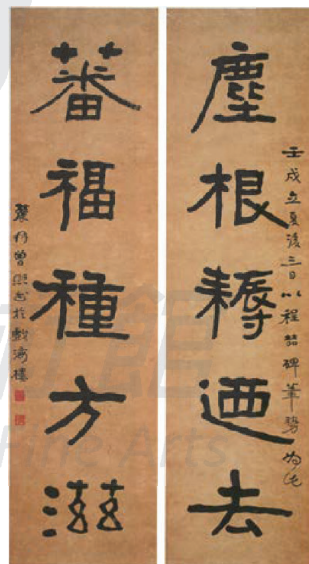 塵根耨迺去
壬戌立夏後三日以程哲碑筆勢為之
蕃福種方滋
農髯曾熙書於戲海樓